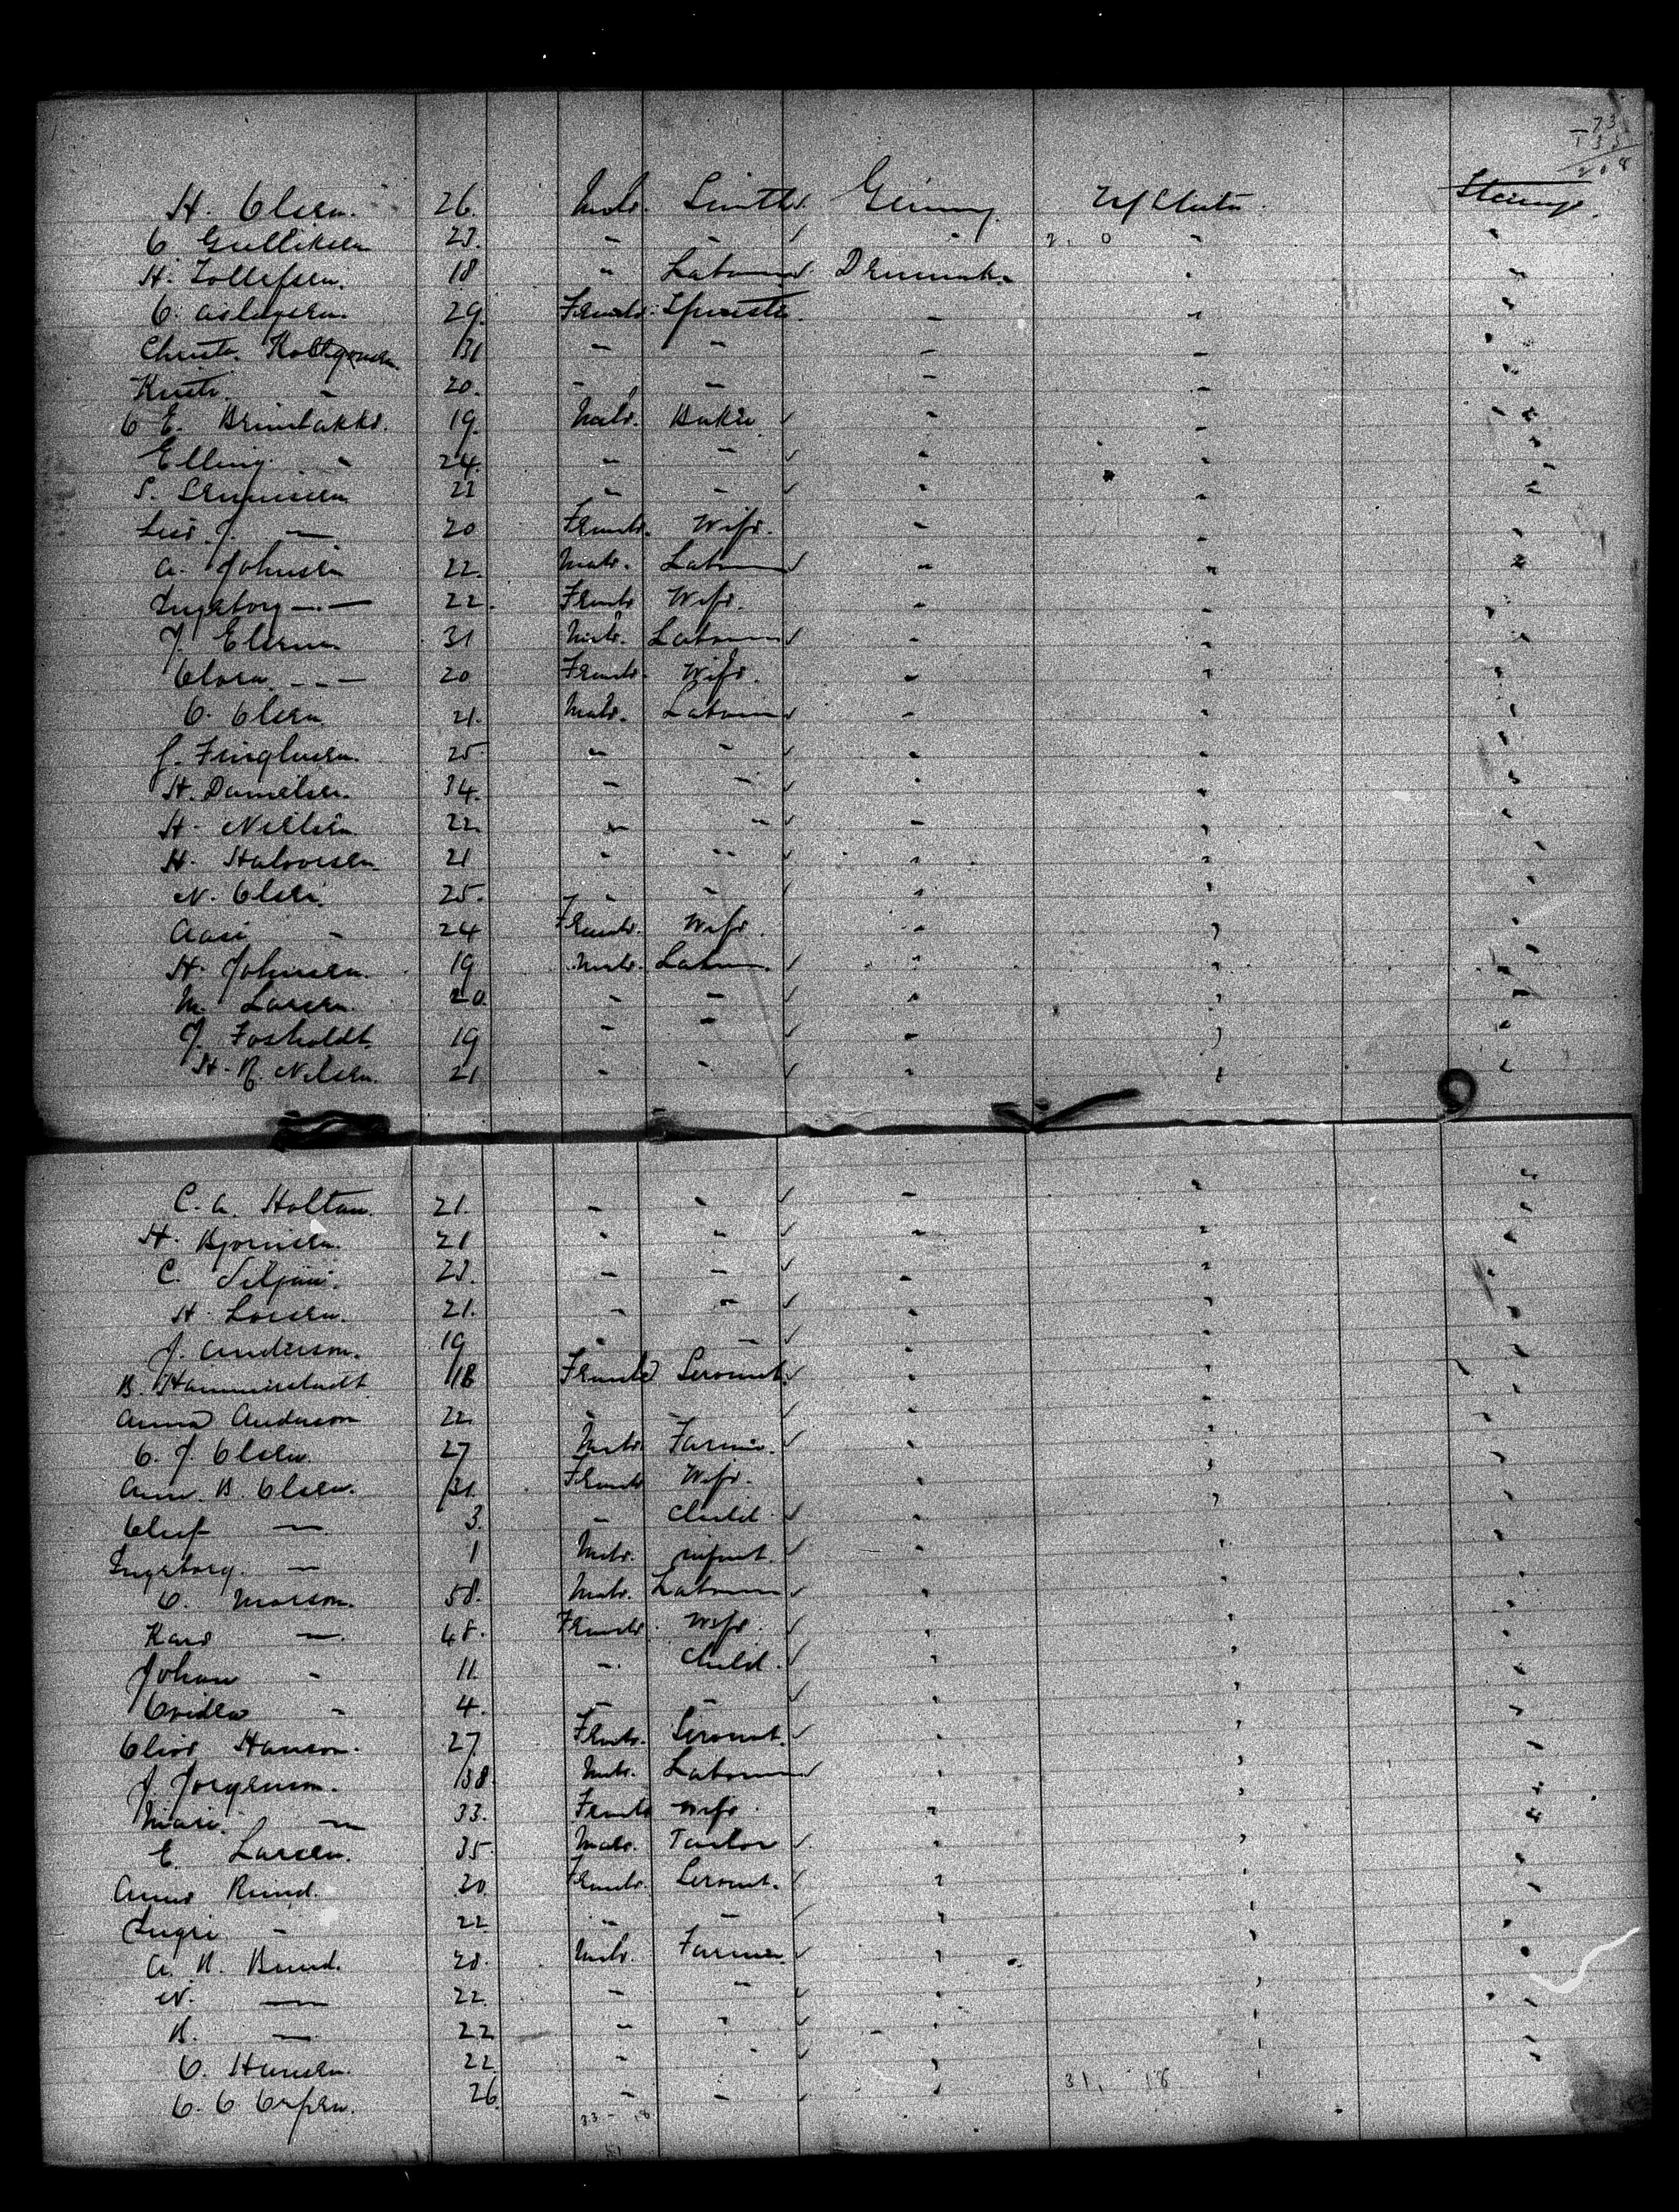 73
133
208
H. Olsen. 26. Male. Smith Germany. U/States. Steerage.
O Gulliksen 23. " " " " "
H. Tollefsen. 18 " Labourer Denmark " "
O. Aslagsen. 29. Female. Spinster. " " "
Christe. 31 " " " " "
Kristi. " 20. " " " " "
O E. Brunbakke. 19. Male. Baker " " "
Elling " 24. " " " " "
S. 22 " " " " "
— 20 Female. Wife. " " "
A. Johnsen 22. Male. Labourer " " "
Ingeborg — 22. Female Wife. " " "
J. 31 Male. Labourer " " "
Olava — 20 Female. Wife. " " "
O. Olsen 21. Male. Labourer " " "
25 " " " " "
H. Danielsen. 34. " " " " "
H. Nielsen 22 " " " " "
H. Halvorsen. 21 " " " " "
N. Olsen. 25. " " " " "
Aase " 24 Female. Wife. " " "
H. Johnsen. 19 Male. Labourer. " " "
M. Larsen. 20. " " " " "
J. Fosholdt. 19 " " " " "
H. R. Nilsen. 21 " " " " "
C. A. Holtan. 21. " " " " "
H. Bjornsen. 21 " " " " "
C. Siljan. 23. " " " " "
H. Larsen. 21. " " " " "
J. Anderson. 19 " " " " "
B. Hammerstadt 18 Female Servant. " " "
Anna Anderson 22. " " " " "
O. J. Olsen. 27 Male Farmer. " " "
Ann. B. Olsen. 31 Female Wife. " " "
Oluf — 3. " Child. " " "
Ingeborg. — 1 Male. infant. " " "
O. Morson. 58. Male. Labourer " " "
Kari —. 48. Female. Wife. " " "
Johan " 11. " Child. " " "
" 4. " " " " "
Hanson. 27 Female. Servant. " " "
J. Jorgenson. 38. Male. Labourer " " "
Mari. — 33. Female wife. " " "
E. Larsen. 35. Male. Tailor " " "
Anne Rund. 20. Female. Servant. " " "
Ingri — 22 " " " " "
A. R. Rund. 28. Male. Farmer " " "
N. — 22. " " " " "
R. — 22 " " " " "
O. Hansen. 22. " " " " "
O. O. 26 " " " " "
31. 18
33 - 18